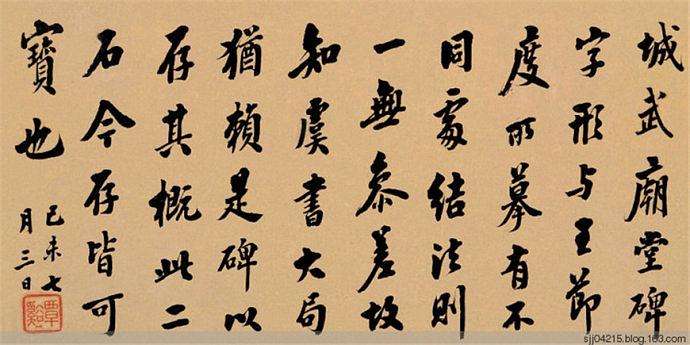 城武廟堂碑
字形与王節
度所摹有不
同處结法則
一無叅差故
知虞書大局
猶賴是碑以
存其概此二
石今存皆可
寶也
己未七
月三日
覃谿
sjj04215.blog.163.com